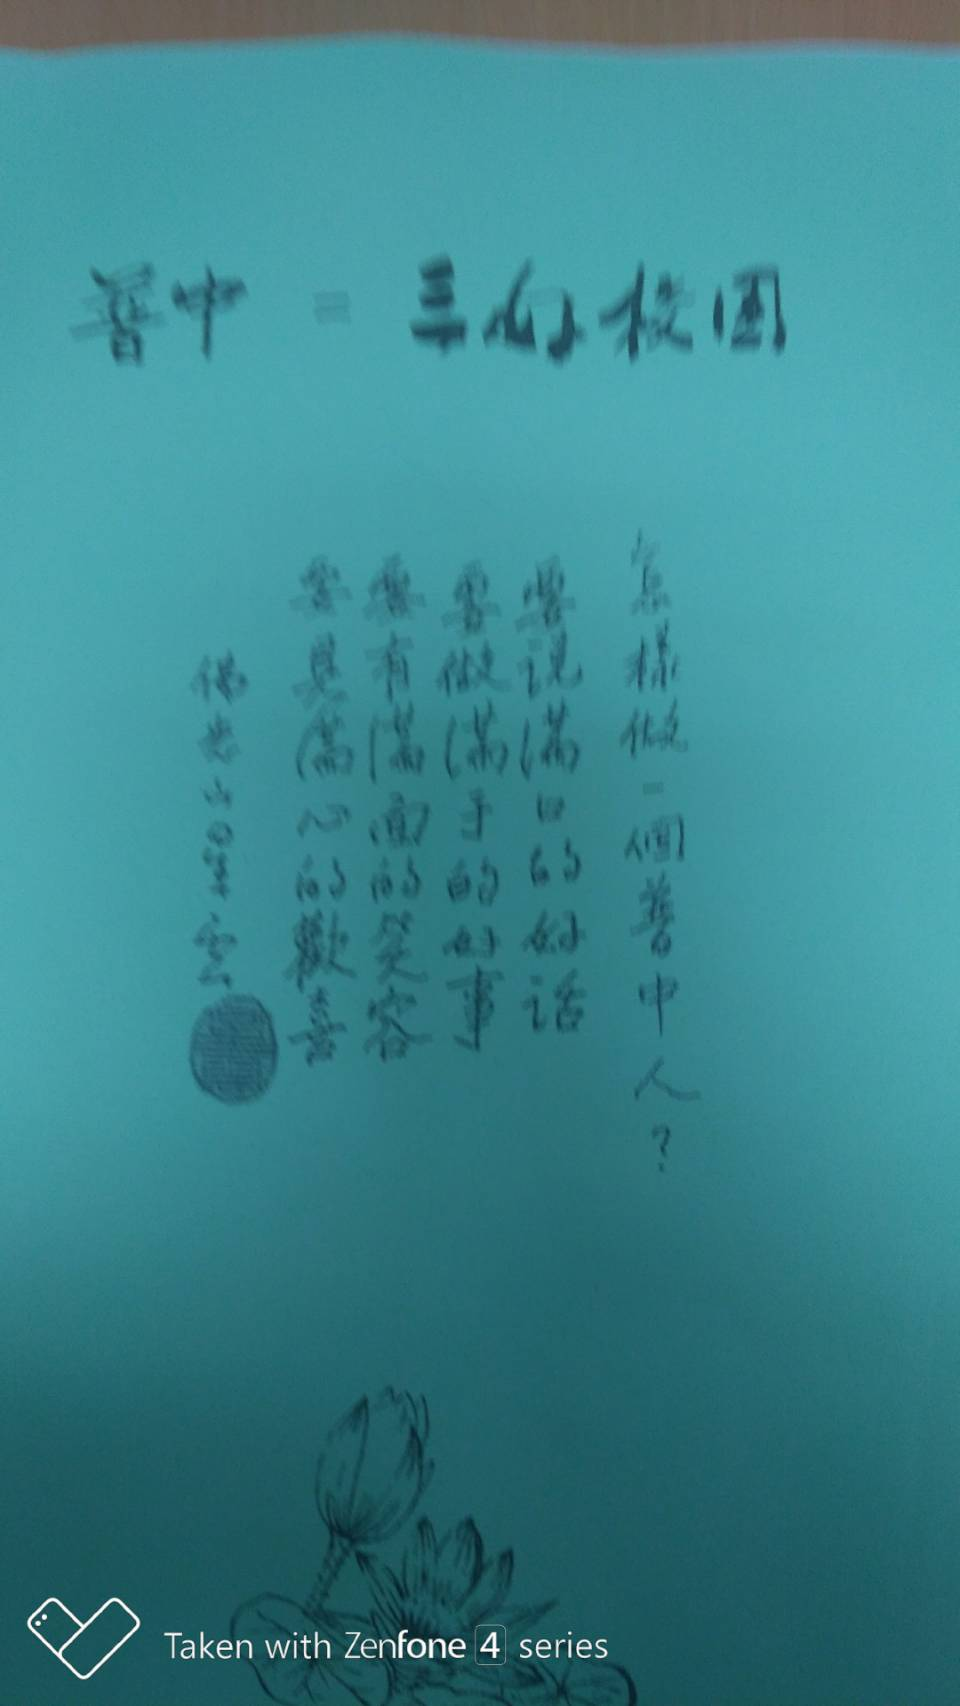 普中=三好校園
怎樣做一個普中人?
要說滿口的好話
要做滿手的好事
要有滿面的笑容
要具滿心的歡喜
佛光山星雲
Taken with Zenfone 4 series